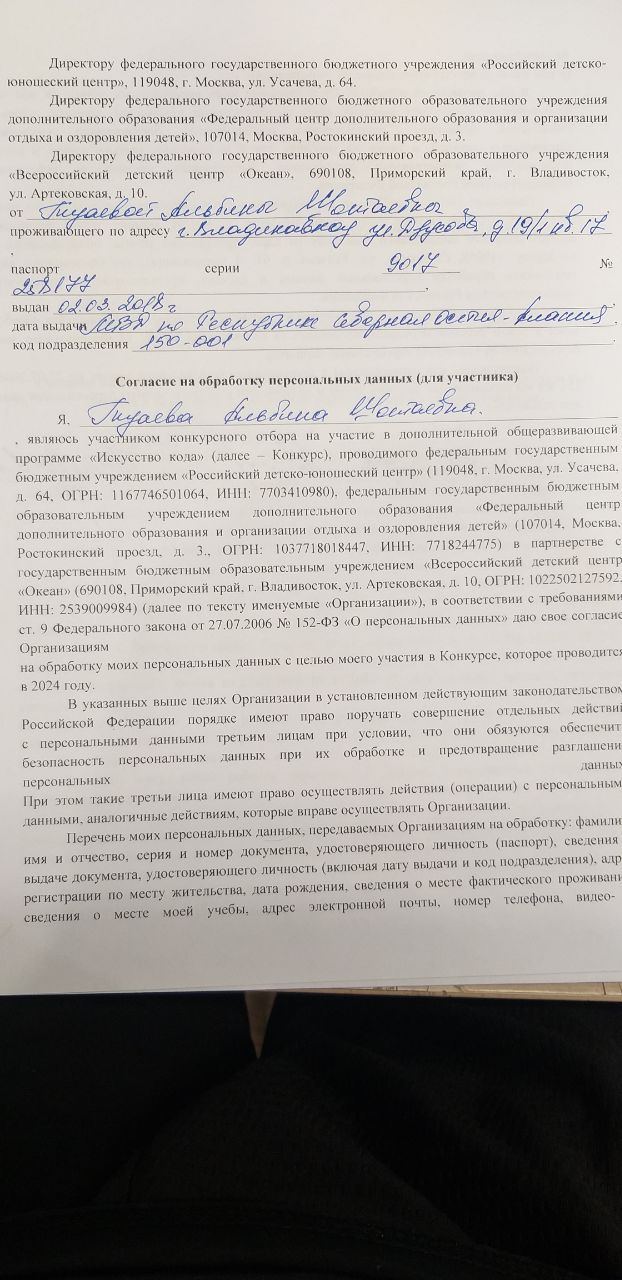 Директору федерального государственного бюджетного учреждения «Российский детско-
юношеский центр», 119048, г. Москва, ул. Усачева, д. 64.
Директору федерального государственного бюджетного образовательного учреждения
дополнительного образования «Федеральный центр дополнительного образования и организации
отдыха и оздоровления детей», 107014, Москва, Ростокинский проезд, д. 3.
Директору федерального государственного бюджетного образовательного учреждения
«Всероссийский детский центр «Океан», 690108, Приморский край, г. Владивосток,
ул. Артековская, д. 10.
от Альбины
проживающего по адресу г. Владикавказ ул. д. 19/1 кв. 17
,
паспорт серии 9017 №
258177 ,
выдан 02.03.2018 г ,
дата выдачи МВД по Республике Северная Осетия - Алания
код подразделения 150-001 .
Согласие на обработку персональных данных (для участника)
Я, Альбина
, являюсь участником конкурсного отбора на участие в дополнительной общеразвивающей
программе «Искусство кода» (далее – Конкурс), проводимого федеральным государственным
бюджетным учреждением «Российский детско-юношеский центр» (119048, г. Москва, ул. Усачева,
д. 64, ОГРН: 1167746501064, ИНН: 7703410980), федеральным государственным бюджетным
образовательным учреждением дополнительного образования «Федеральный центр
дополнительного образования и организации отдыха и оздоровления детей» (107014, Москва,
Ростокинский проезд, д. 3., ОГРН: 1037718018447, ИНН: 7718244775) в партнерстве с
государственным бюджетным образовательным учреждением «Всероссийский детский центр
«Океан» (690108, Приморский край, г. Владивосток, ул. Артековская, д. 10, ОГРН: 1022502127592,
ИНН: 2539009984) (далее по тексту именуемые «Организации»), в соответствии с требованиями
ст. 9 Федерального закона от 27.07.2006 № 152-ФЗ «О персональных данных» даю свое согласие
Организациям
на обработку моих персональных данных с целью моего участия в Конкурсе, которое проводится
в 2024 году.
В указанных выше целях Организации в установленном действующим законодательством
Российской Федерации порядке имеют право поручать совершение отдельных действий
с персональными данными третьим лицам при условии, что они обязуются обеспечить
безопасность персональных данных при их обработке и предотвращение разглашени
персональных данных
При этом такие третьи лица имеют право осуществлять действия (операции) с персональным
данными, аналогичные действиям, которые вправе осуществлять Организации.
Перечень моих персональных данных, передаваемых Организациям на обработку: фамили
имя и отчество, серия и номер документа, удостоверяющего личность (паспорт), сведения
выдаче документа, удостоверяющего личность (включая дату выдачи и код подразделения), адр
регистрации по месту жительства, дата рождения, сведения о месте фактического проживани
сведения о месте моей учебы, адрес электронной почты, номер телефона, видео-